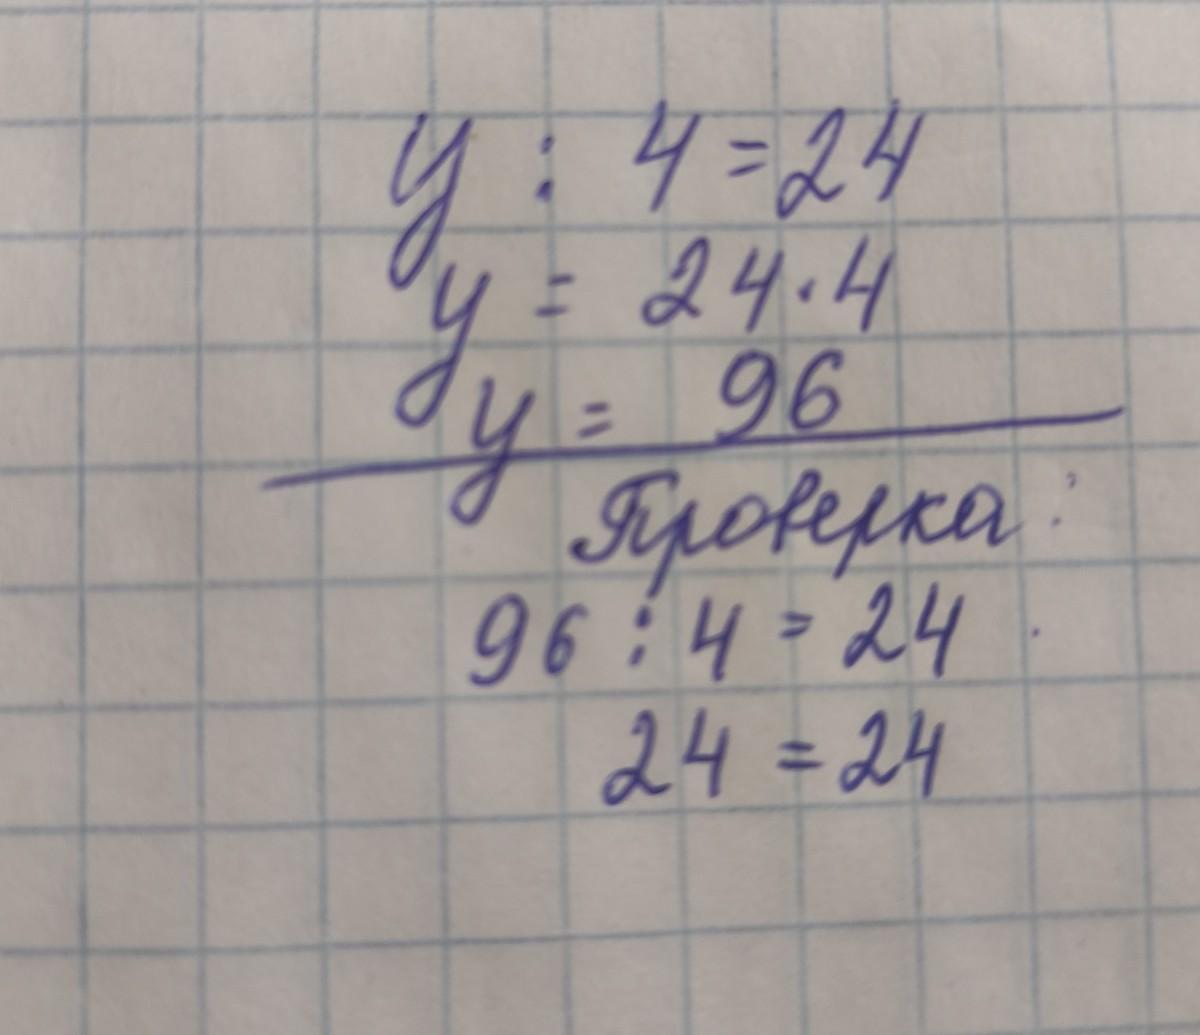 у : 4 = 24
у = 24 · 4
у = 96
Проверка :
96 : 4 = 24
24 = 24